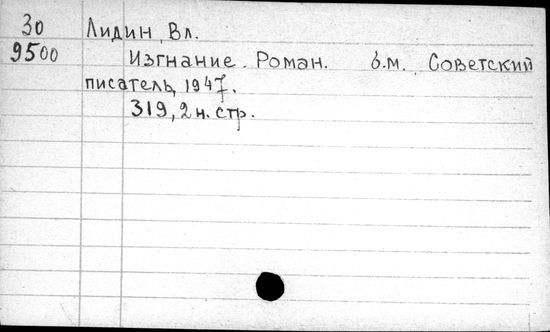 30 Лидин, Вл.
9500 Изгнание. Роман. б.м., Советский
писатель, 1947.
319, 2 н. стр.